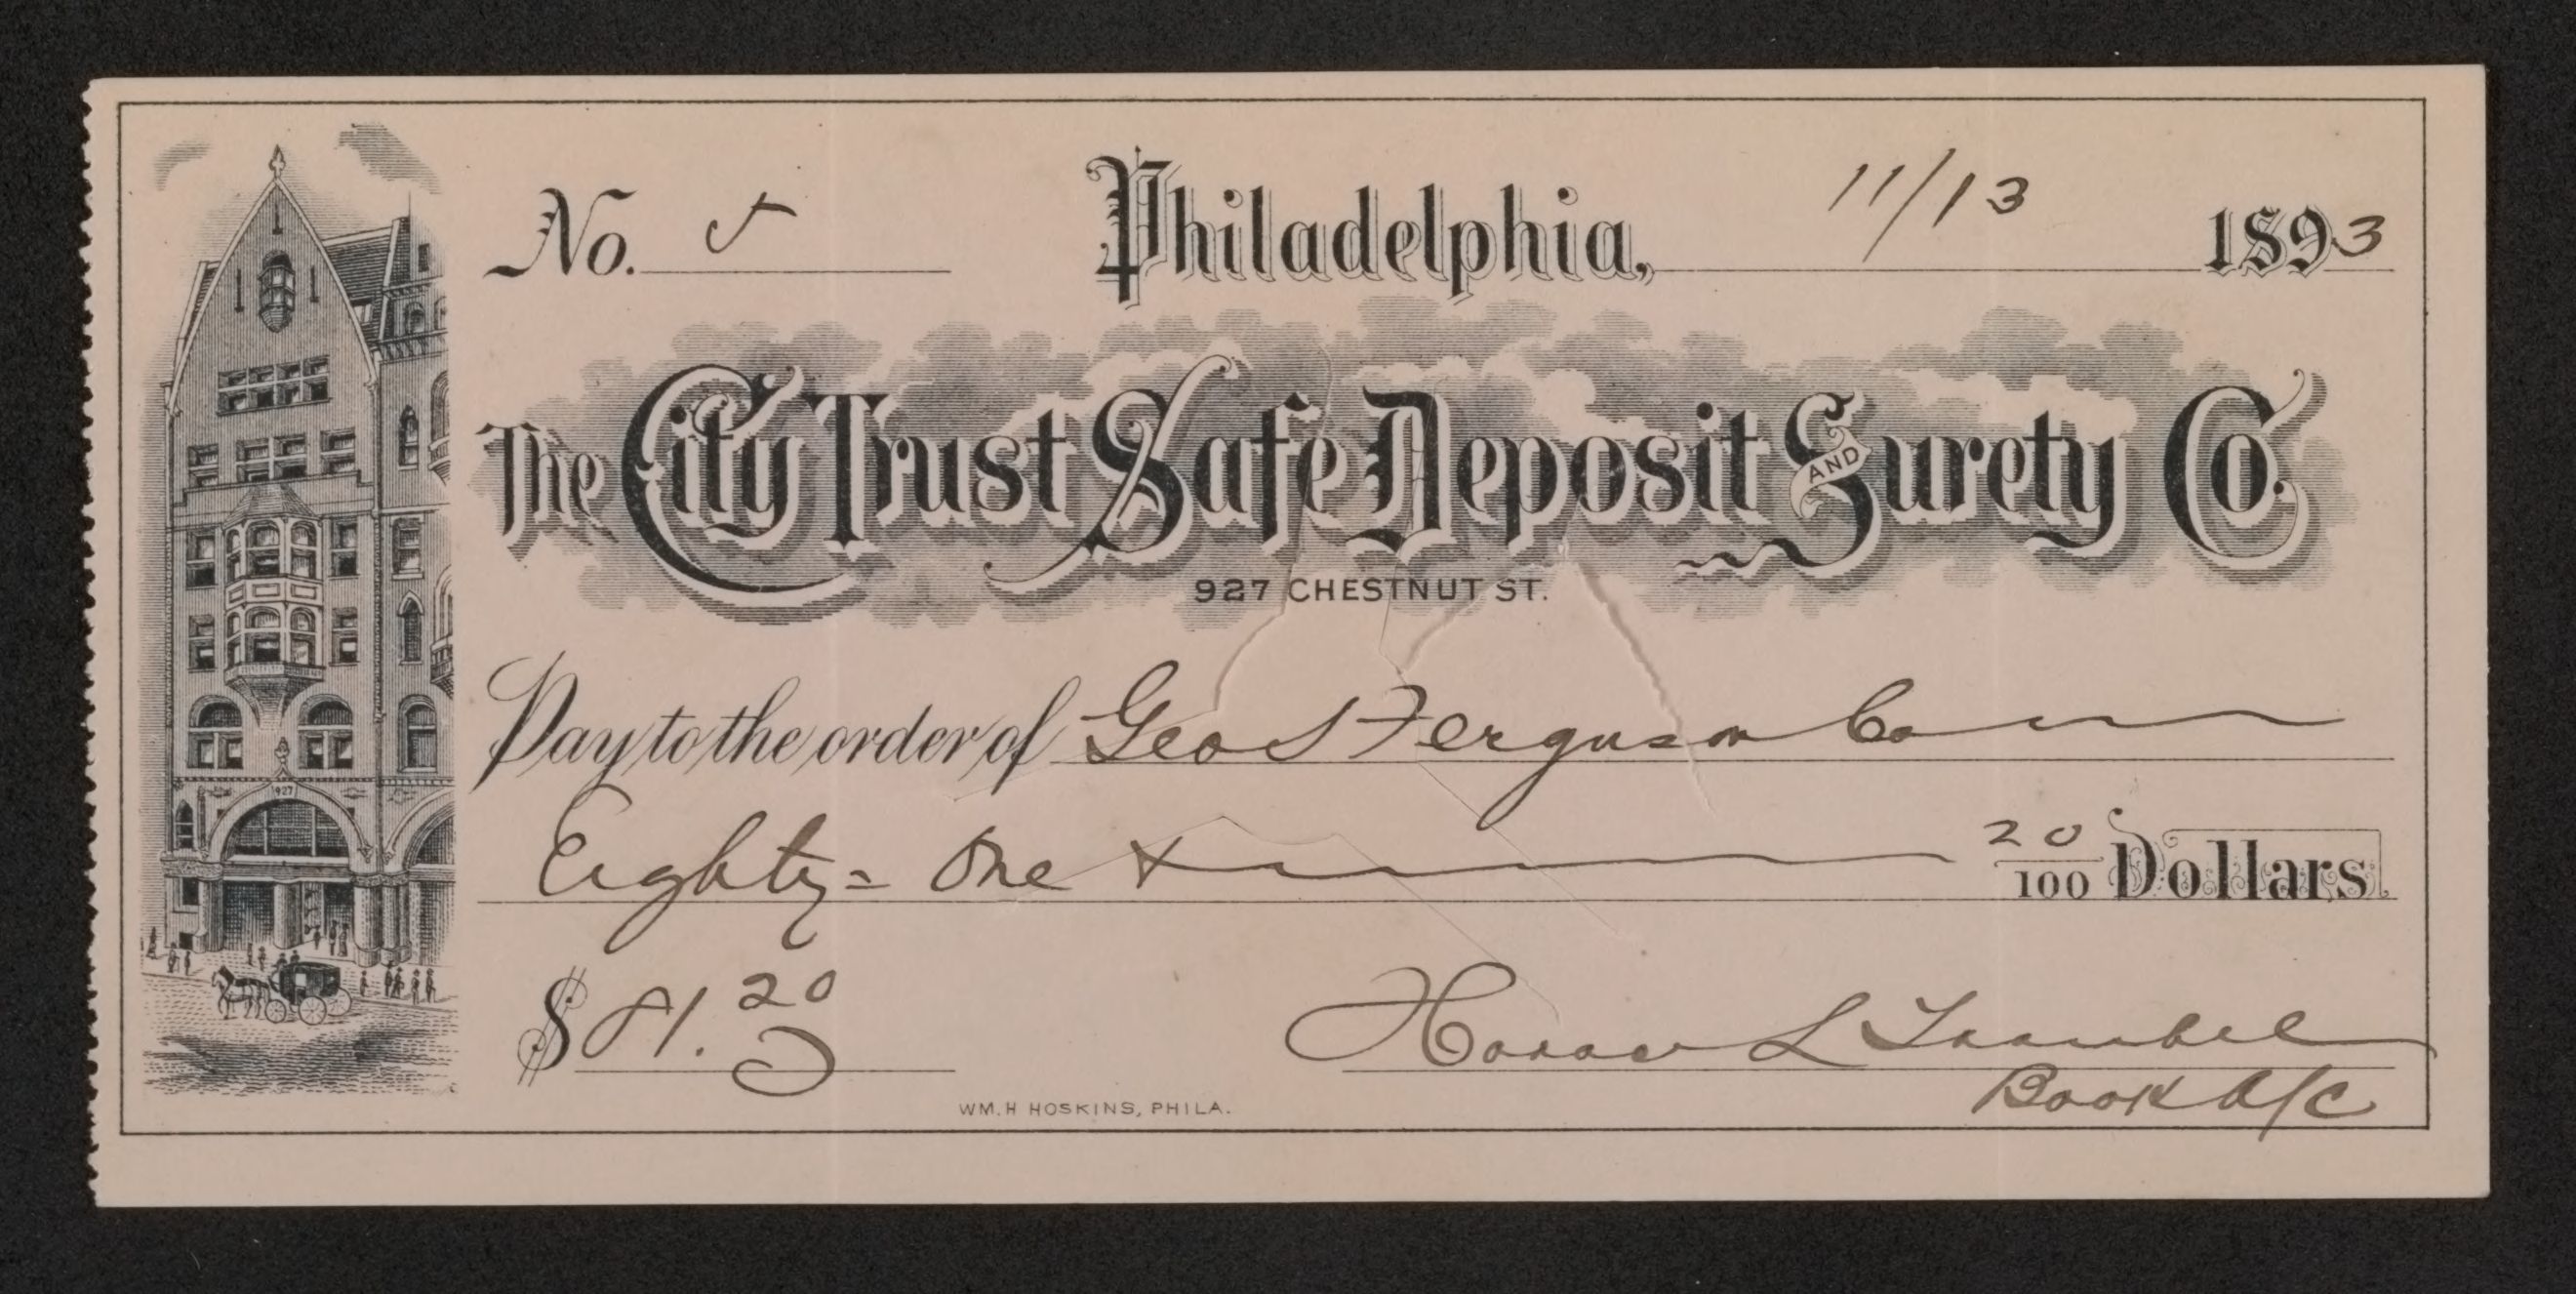 No. 5 Philadelphia, 11/13 1893
The City Trust Safe Deposit AND Surety Co.
927 CHESTNUT ST.
Pay to the order of Geo S Ferguson Co
Eighty=One & 20/100 Dollars
$81.20
Horace L Traubel
Book A/C
WM. H HOSKINS, PHILA.
927